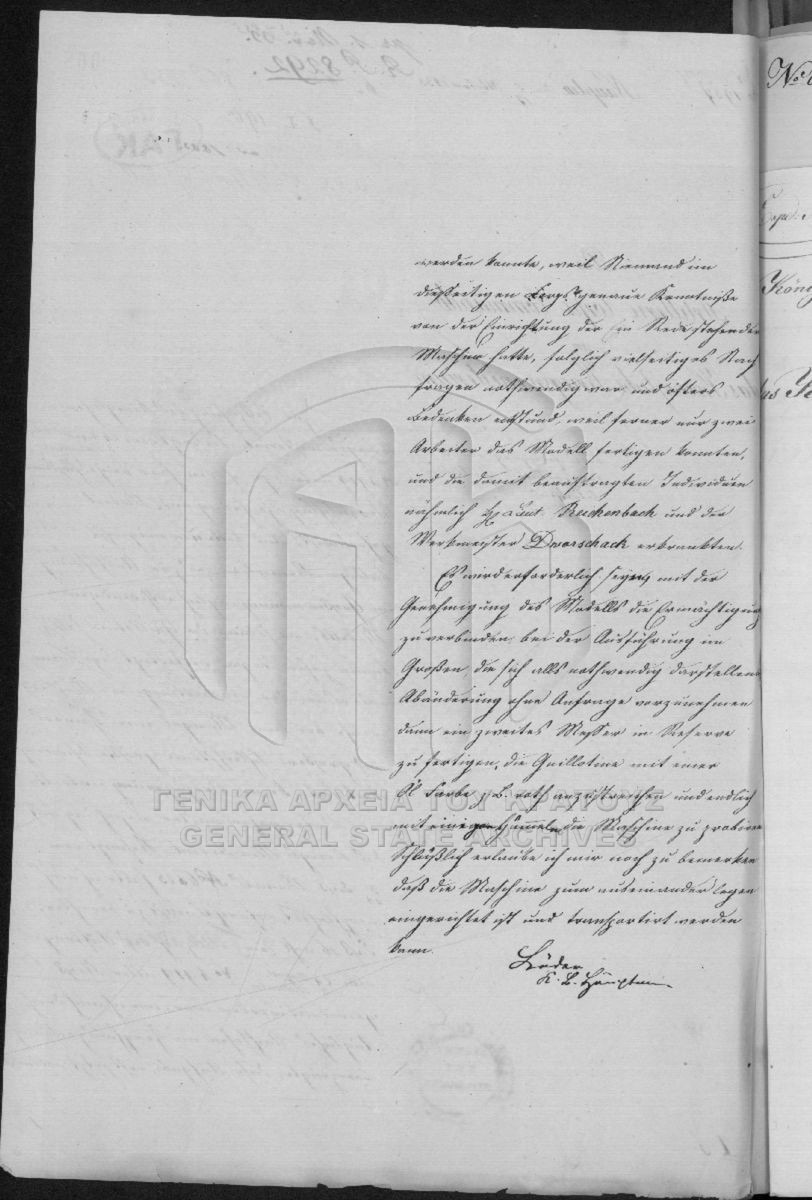 werden konnte, weil Niemand im
diesseitigen Corps genaue Kenntniße
von der Einrichtung der in Rede stehenden
Maschine hatte, folglich vielseitiges Nach
fragen nothwendig war, und öfters
Bedenken entstund, weil ferner nur zwei
Arbeiter das Modell fertigen konnten,
und die damit beauftragten Individuen
nähmlich Lieut. Reichenbach und der
Werkmeister Dworschack erkrankten.
Es wird erforderlich seyn, mit der
Genehmigung des Modells die Ermächtigung
zu verbinden, bei der Ausführung im
Großen, die sich alls nothwendig darstellende
Abänderung ohne Anfrage vorzunehmen
dann ein zweites Messer in Reserve
zu fertigen, die Guillotine mit einer
Öl Farbe z. B. roth anzustreichen und endlich
mit einigen Hämmeln die Maschine zu probiren
Schlüßlich erlaube ich mir noch zu bemerken
daß die Maschine zum auseinander legen
eingerichtet ist und transportirt werden
kann.
K. B. Hauptm
ΓΕΝΙΚΑ ΑΡΧΕΙΑ ΤΟΥ ΚΡΑΤΟΥΣ
GENERAL STATE ARCHIVES